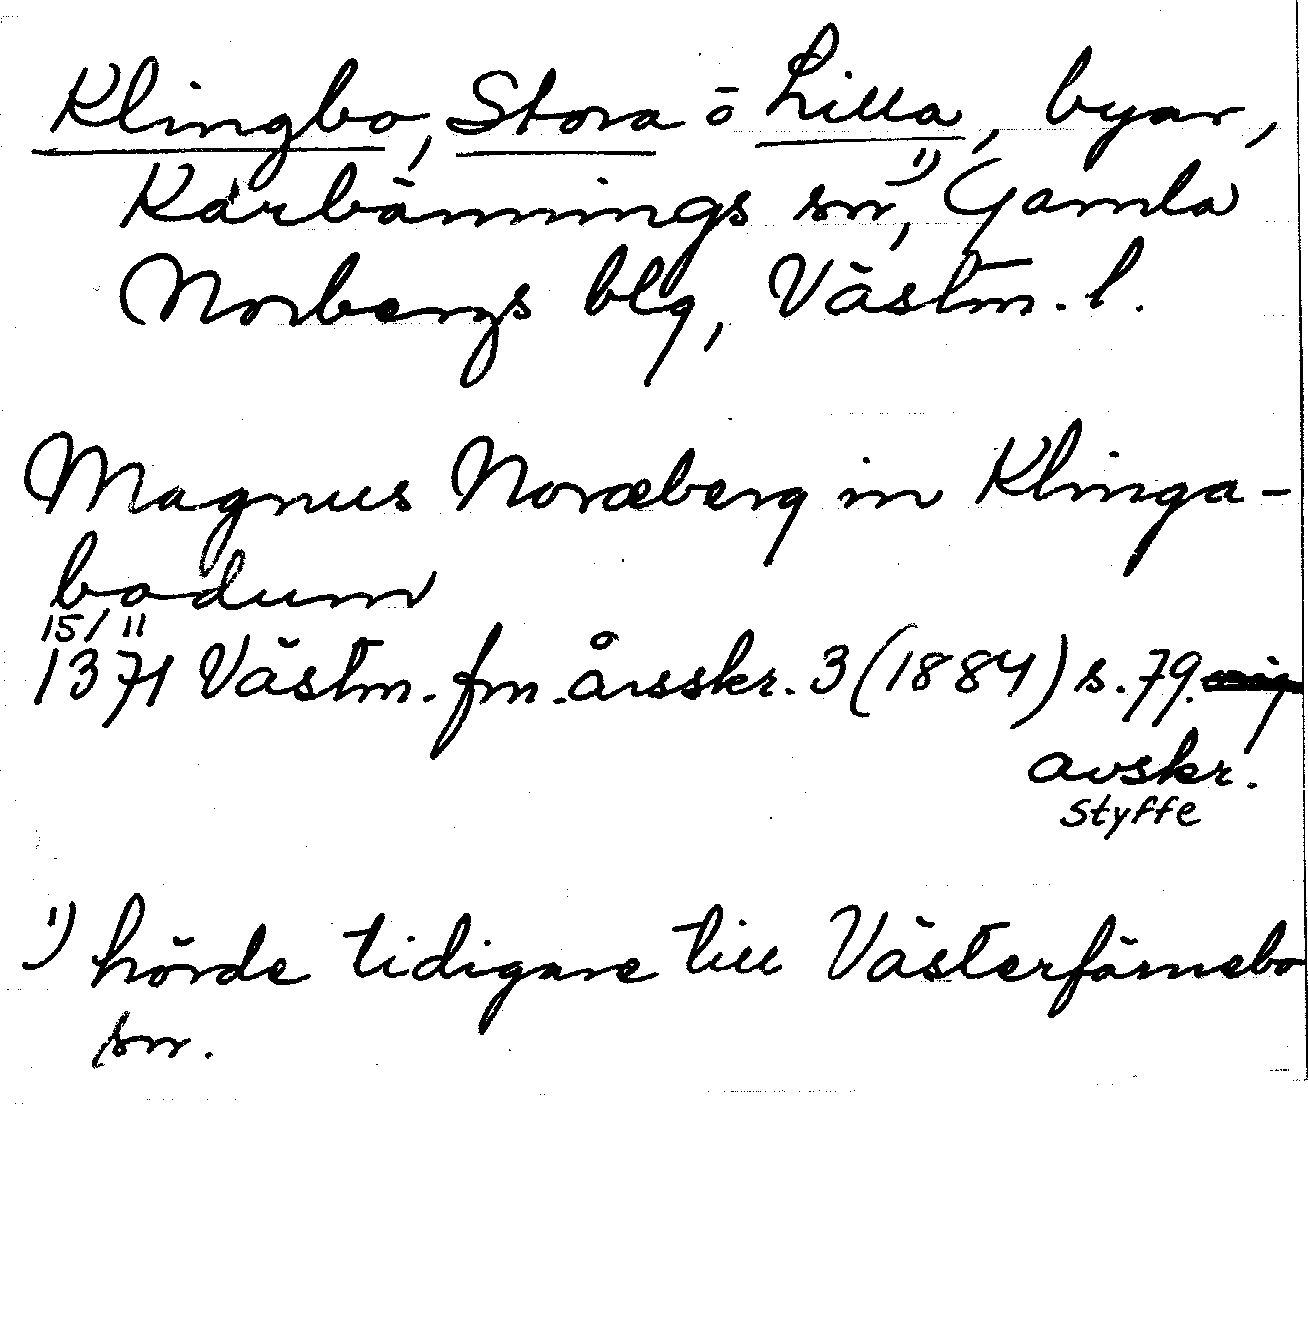 Klingbo, Stora o Lilla, byar,
Karbännings sn¹⁾, Gamla
Norbergs blg, Västm. l.
Magnus Noræberg in Klinga-
bodum
15/11
1371 Västm. fm. årsskr. 3 (1884) s. 79.
avskr.
Styffe
¹⁾ hörde tidigare till Västerfärnebo
sn.